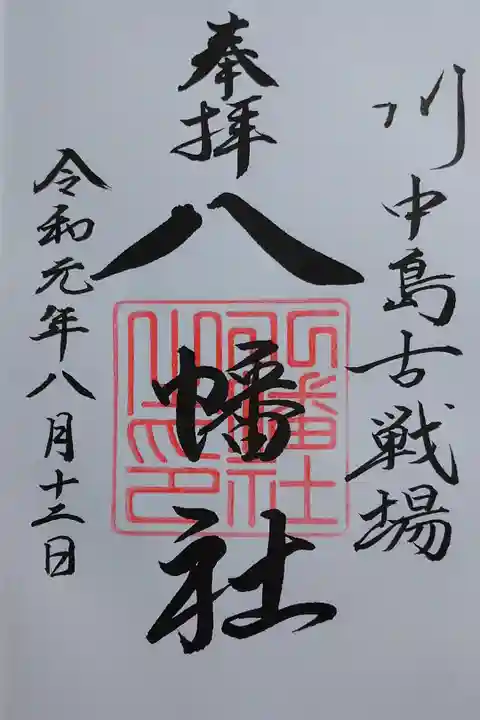 川中島古戦場
奉拝
八幡社
令和元年八月十二日
八幡社之印